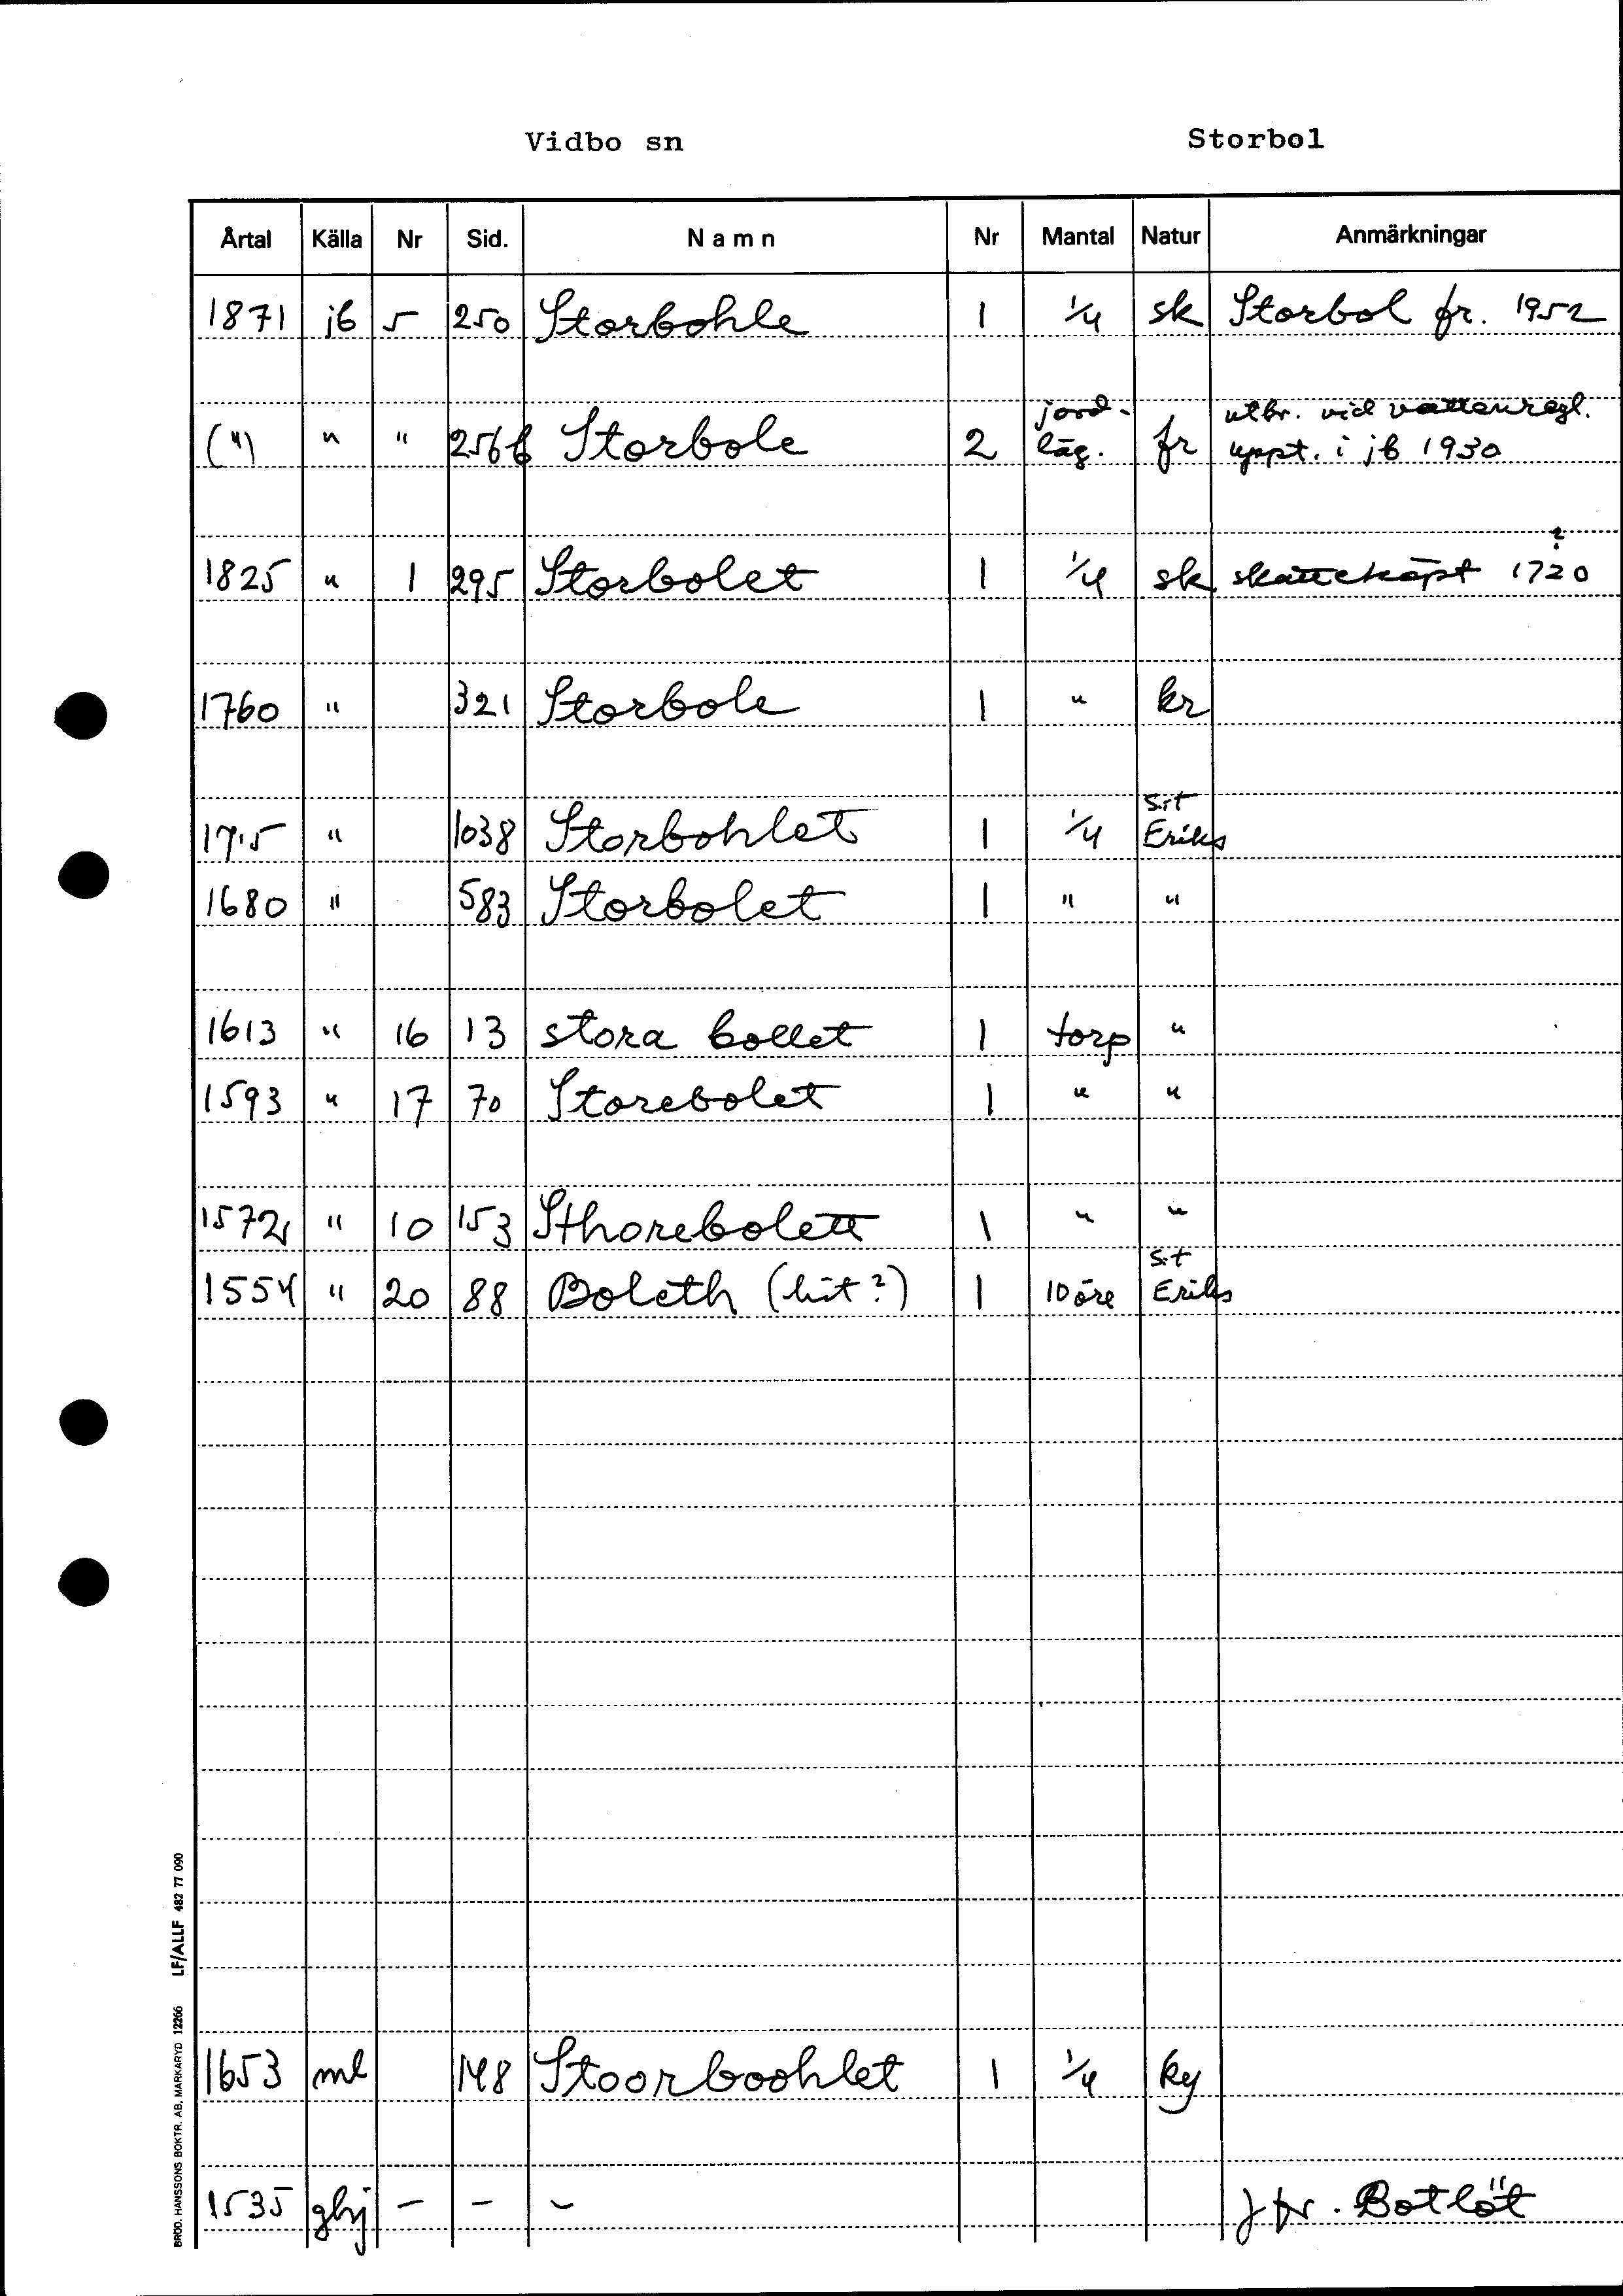 Vidbo sn Storbol
Årtal Källa Nr Sid. Namn Nr Mantal Natur Anmärkningar
1871 jb 5 250 Storbohle 1 1/4 sk Storbol fr. 1952
jord- utbr. vid vattenregl.
(") " " 256b Storbole 2 läg. fr uppt. i jb 1930
?
1825 " 1 295 Storbolet 1 1/4 sk skatteköpt 1720
1760 " 321 Storbole 1 " kr
S:t
1715 " 1038 Storbohlet 1 1/4 Eriks
1680 " 583 Storbolet 1 " "
1613 " 16 13 stora bollet 1 torp "
1593 " 17 70 Storebolet 1 " "
1572 " 10 153 Sthorebolett 1 " "
S:t
1554 " 20 88 Boleth (hit?) 1 10 öre Eriks
1653 ml 148 Stoorboohlet 1 1/4 ky
1535 ghj – – – Jfr. Botlöt
BRÖD. HANSSONS BOKTR. AB, MARKARYD 12266 LF/ALLF 482 77 090